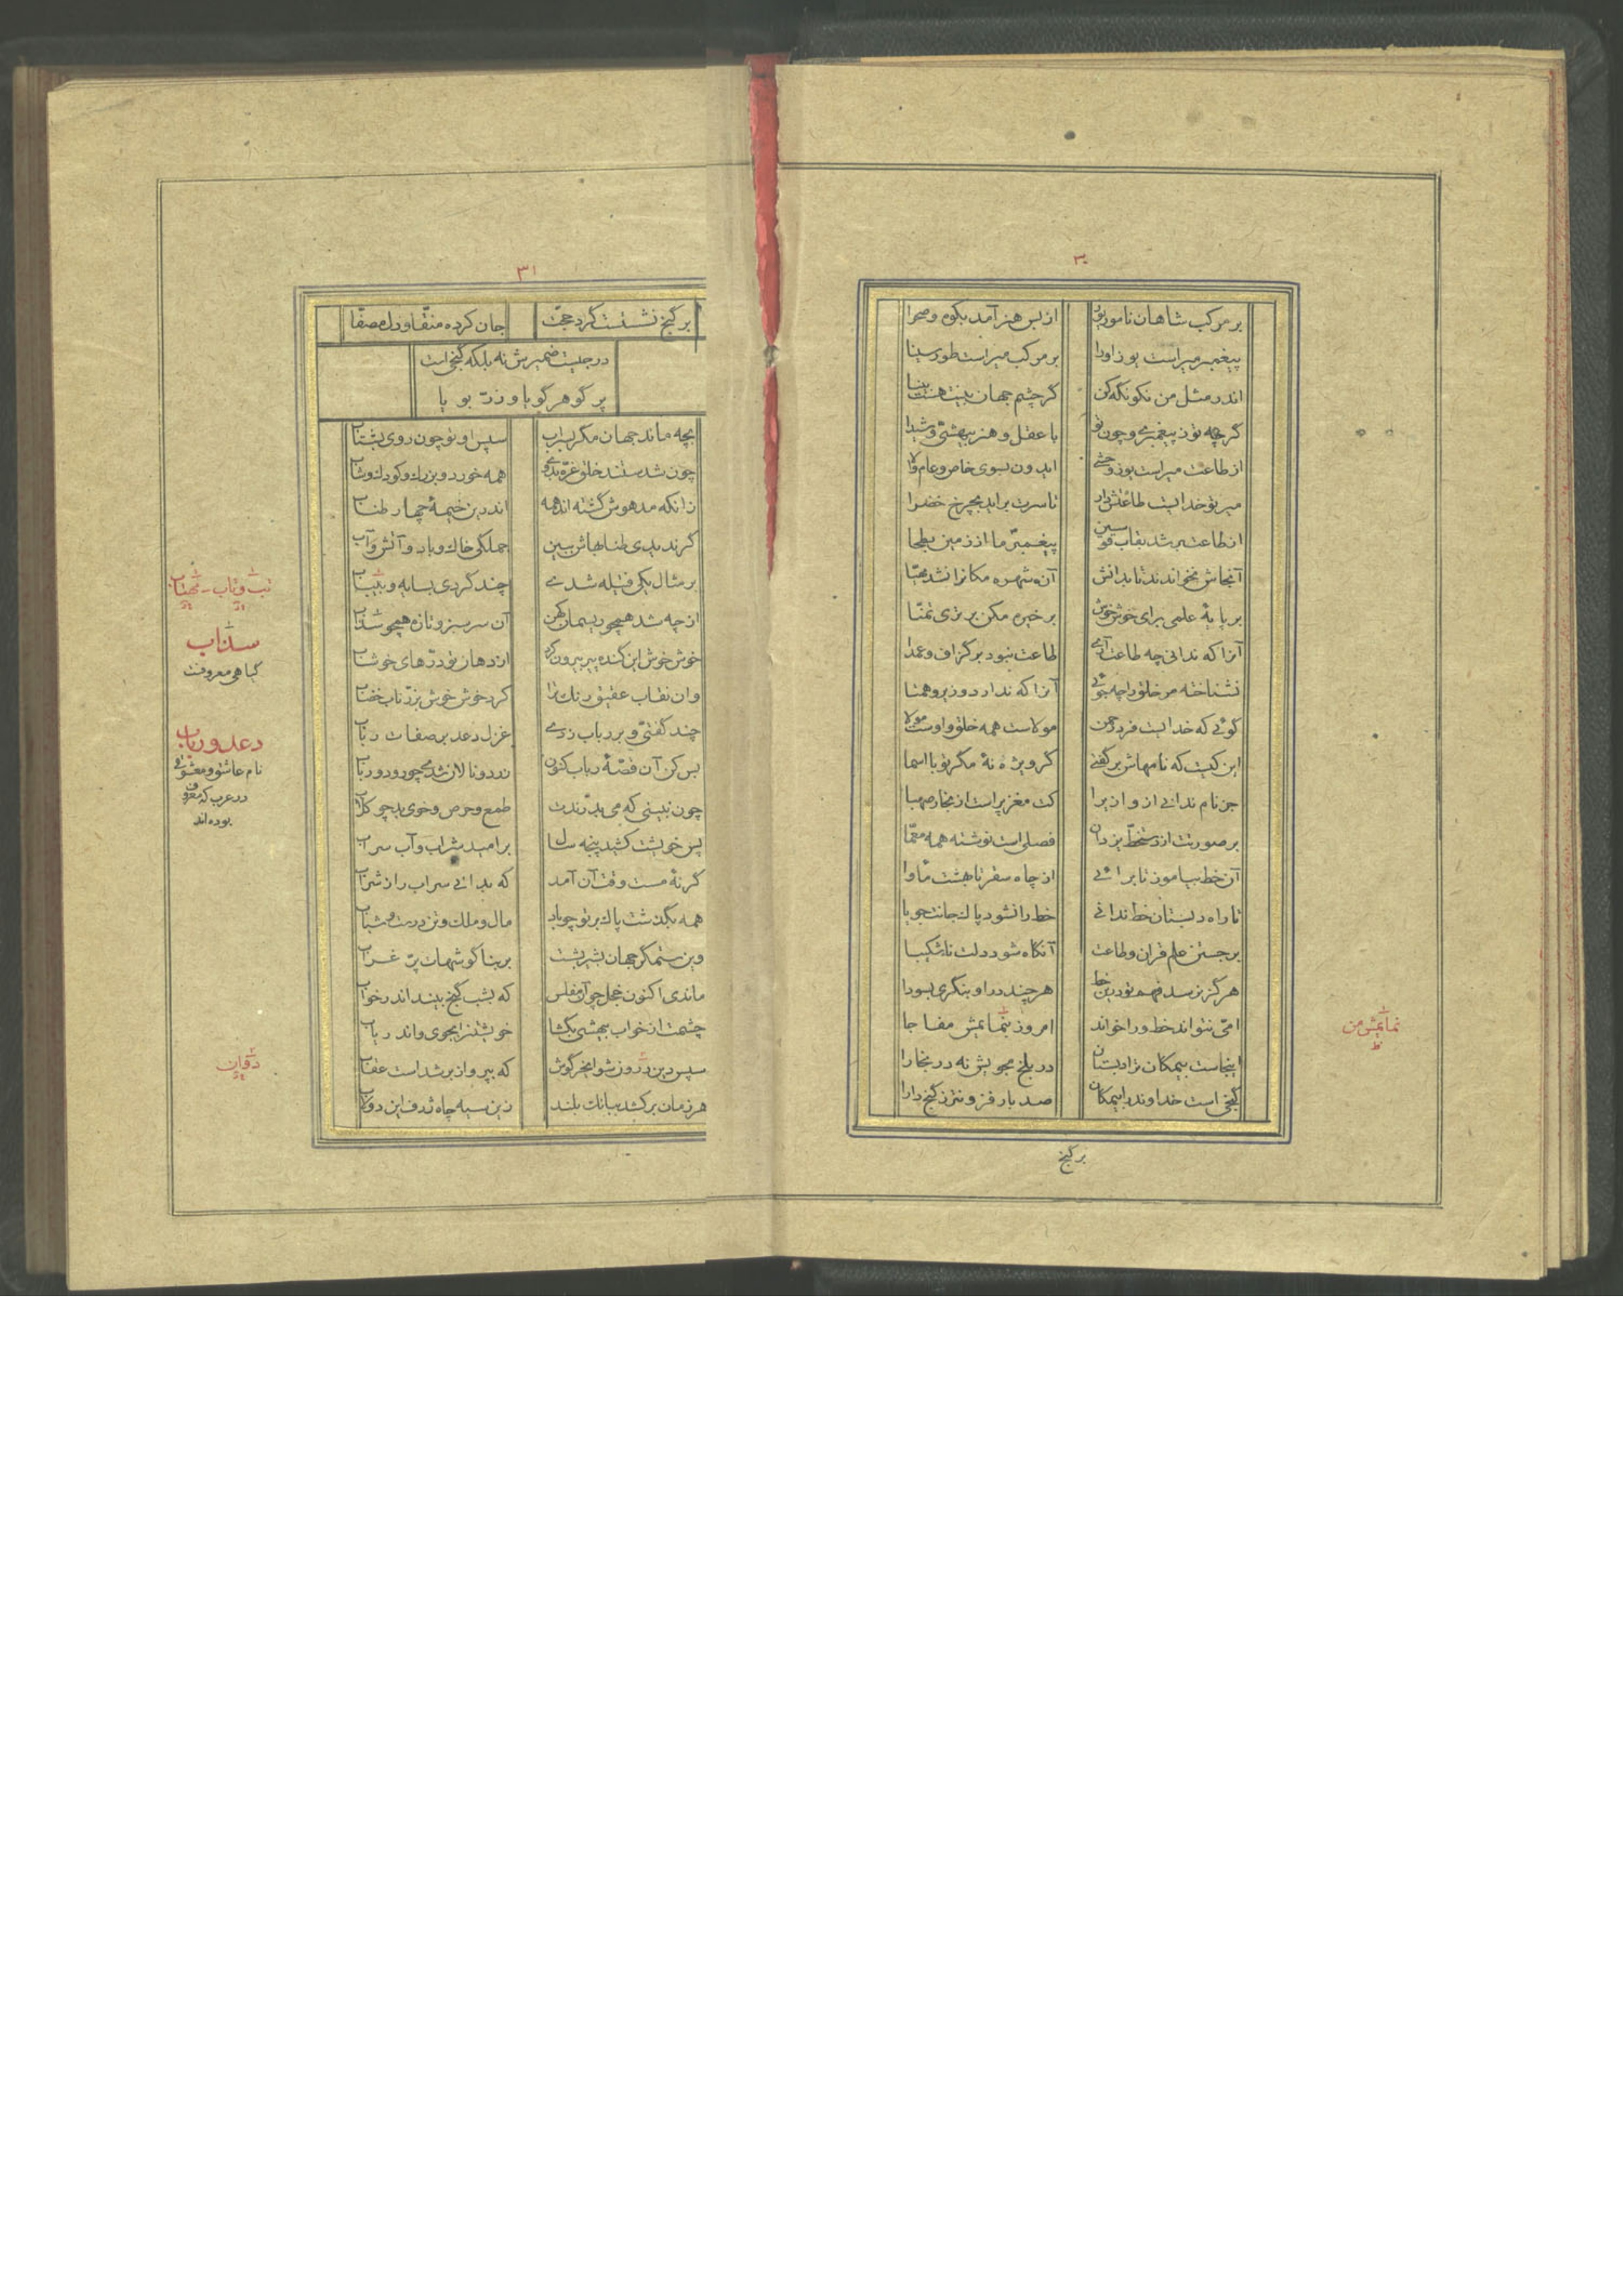 ۳۰
بر مرکب شاهان نامور بوز از بس هنر آمد بکوه و صحرا
پیغمبر میراست یوز او را بر مرکب میراست طور سینا
اندر مثل من نکو نگه کن گر چشم جهان بینت هست بینا
گرچه نه پیغمبری و چون تو با عقل و هنر
از طاعت میراست یوز وحشی ایدون بسوی خاص و عام والا
میر تو خدایست طاعتش دار تا سرت براید بچرخ خضرا
از طاعت بر شد بقاب قوسین پیغمبر ما از زمین بطحا
آنجاش نخواندند تا بدانش آن شهره مکانرا نشد مهیا
بر پایهٔ علمی برای خوش خوش بر خیره مکن برتری تمنا
آنرا که ندانی چه طاعت آری طاعت نبود بر گزاف و عمدا
نشناخته مر خلق را چه جوئی آنرا که ندارد وزیر و همتا
گوئی که خدایست فرد و رحمن مولاست همه خلق و اوست مولا
این کیست که نامهاش بر گفتی گر ویژه نهٔ مگر تو با اسما
جز نام ندانی از و ازیرا کت مغز پر است از بخار صهبا
بر صورتت از دستخط یزدان فصلی است نوشته همه معما
آن خط بیاموز تا برائی از چاه سقر تا بهشت مأوا
تا راه دبستان خط ندانی خط را نشود پاک جانت جویا
بر جستن علم قران و طاعت آنگاه شود دلت ناشکیبا
هرگز نرسد فهم تو در این خط هر چند در او بنگری بسودا
امی نتواند خط ورا خواند امروز بنمایمش مفاجا
اینجاست بیمکان ترا دبستان در بلخ مجویش نه در بخارا
گنجی است خداوند را بیمکان صد بار فزونتر ز گنج دارا
بر گنج
نمایمش من
ظ
۳۱
بر گنج نشستست گرد حجت جان کرده منقا و دل مصفا
در جلیت ضمیرش نه بلکه گنجی است
پر گوهر گویا و زر بویا
بچه ماند جهان مگر بسراب سپس او تو چون دوی بشتاب
چون شدستند خلق غره بدوی همه خورد و بزرگ و کودک و شاب
زانکه مدهوش گشته اند همه اندرین خیمهٔ چهار طناب
گر ندیدی طنابهاش ببین جملگی خاک و باد و آتش و آب
بر مثال یکی فتیله شدی چند گردی بسایه و
از چه شد همچو ریسمان کهن آن سر سبز و تازه همچو سداب
خوش خوش این گنده پیر بیرون کرد از دهان تو درهای خوشاب
وان نقاب عقیق رنگ ترا کرد خوش خوش بزر ناب خضاب
چند گفتی و بر رباب زدی غزل دعد بر صفات رباب
بس کن آن قصهٔ رباب کنون زرد و نالان شدی چو رود رباب
چون نبینی که می بدرندت طمع و حرص و خوی بد چو کلاب
پس خویشت کشید پنجه سال بر امید شراب و آب سراب
گر نهٔ مست وقت آن آمد که بدانی سراب را ز شراب
همه بگذشت پاک بر تو چو باد مال و ملک و تن درست و شباب
وین ستمگر جهان بشیر بشست بر بناگوشهات پر غراب
ماندی اکنون خجل چو آن مفلس که بشب گنج بیند اندر خواب
چشمت از خواب بیهشی بگشا خویشتن را بجوی و اندر یاب
سپس دین درون شو ای خرگوش که بپرواز بر شداست عقاب
هر زمان برکشد ببانگ بلند زین سیه چاه ژرف این دولاب
تب و تاب - بتهتاب
سداب
گیاهی معروفست
دعد و رباب
نام عاشق و معشوقی
در عرب که معروف
بوده اند